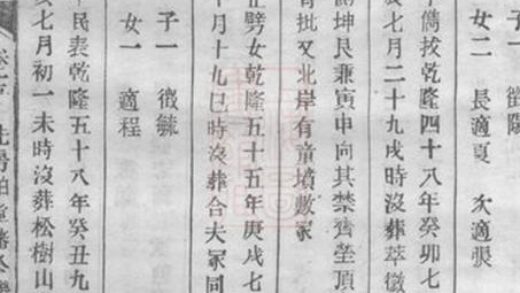 子一 徵陽
女二 長適夏 次適張
雋拔乾隆四十八年癸卯七
七月二十九戌時沒葬萃徵
坤艮兼寅申向其禁齊塋頂
有批又北岸有童墳數冢
劈女乾隆五十五年庚戌七
十月十九巳時沒葬合夫冢同
子一 徵毓
女一 適程
民表乾隆五十八年癸丑九
七月初一未時沒葬松樹山